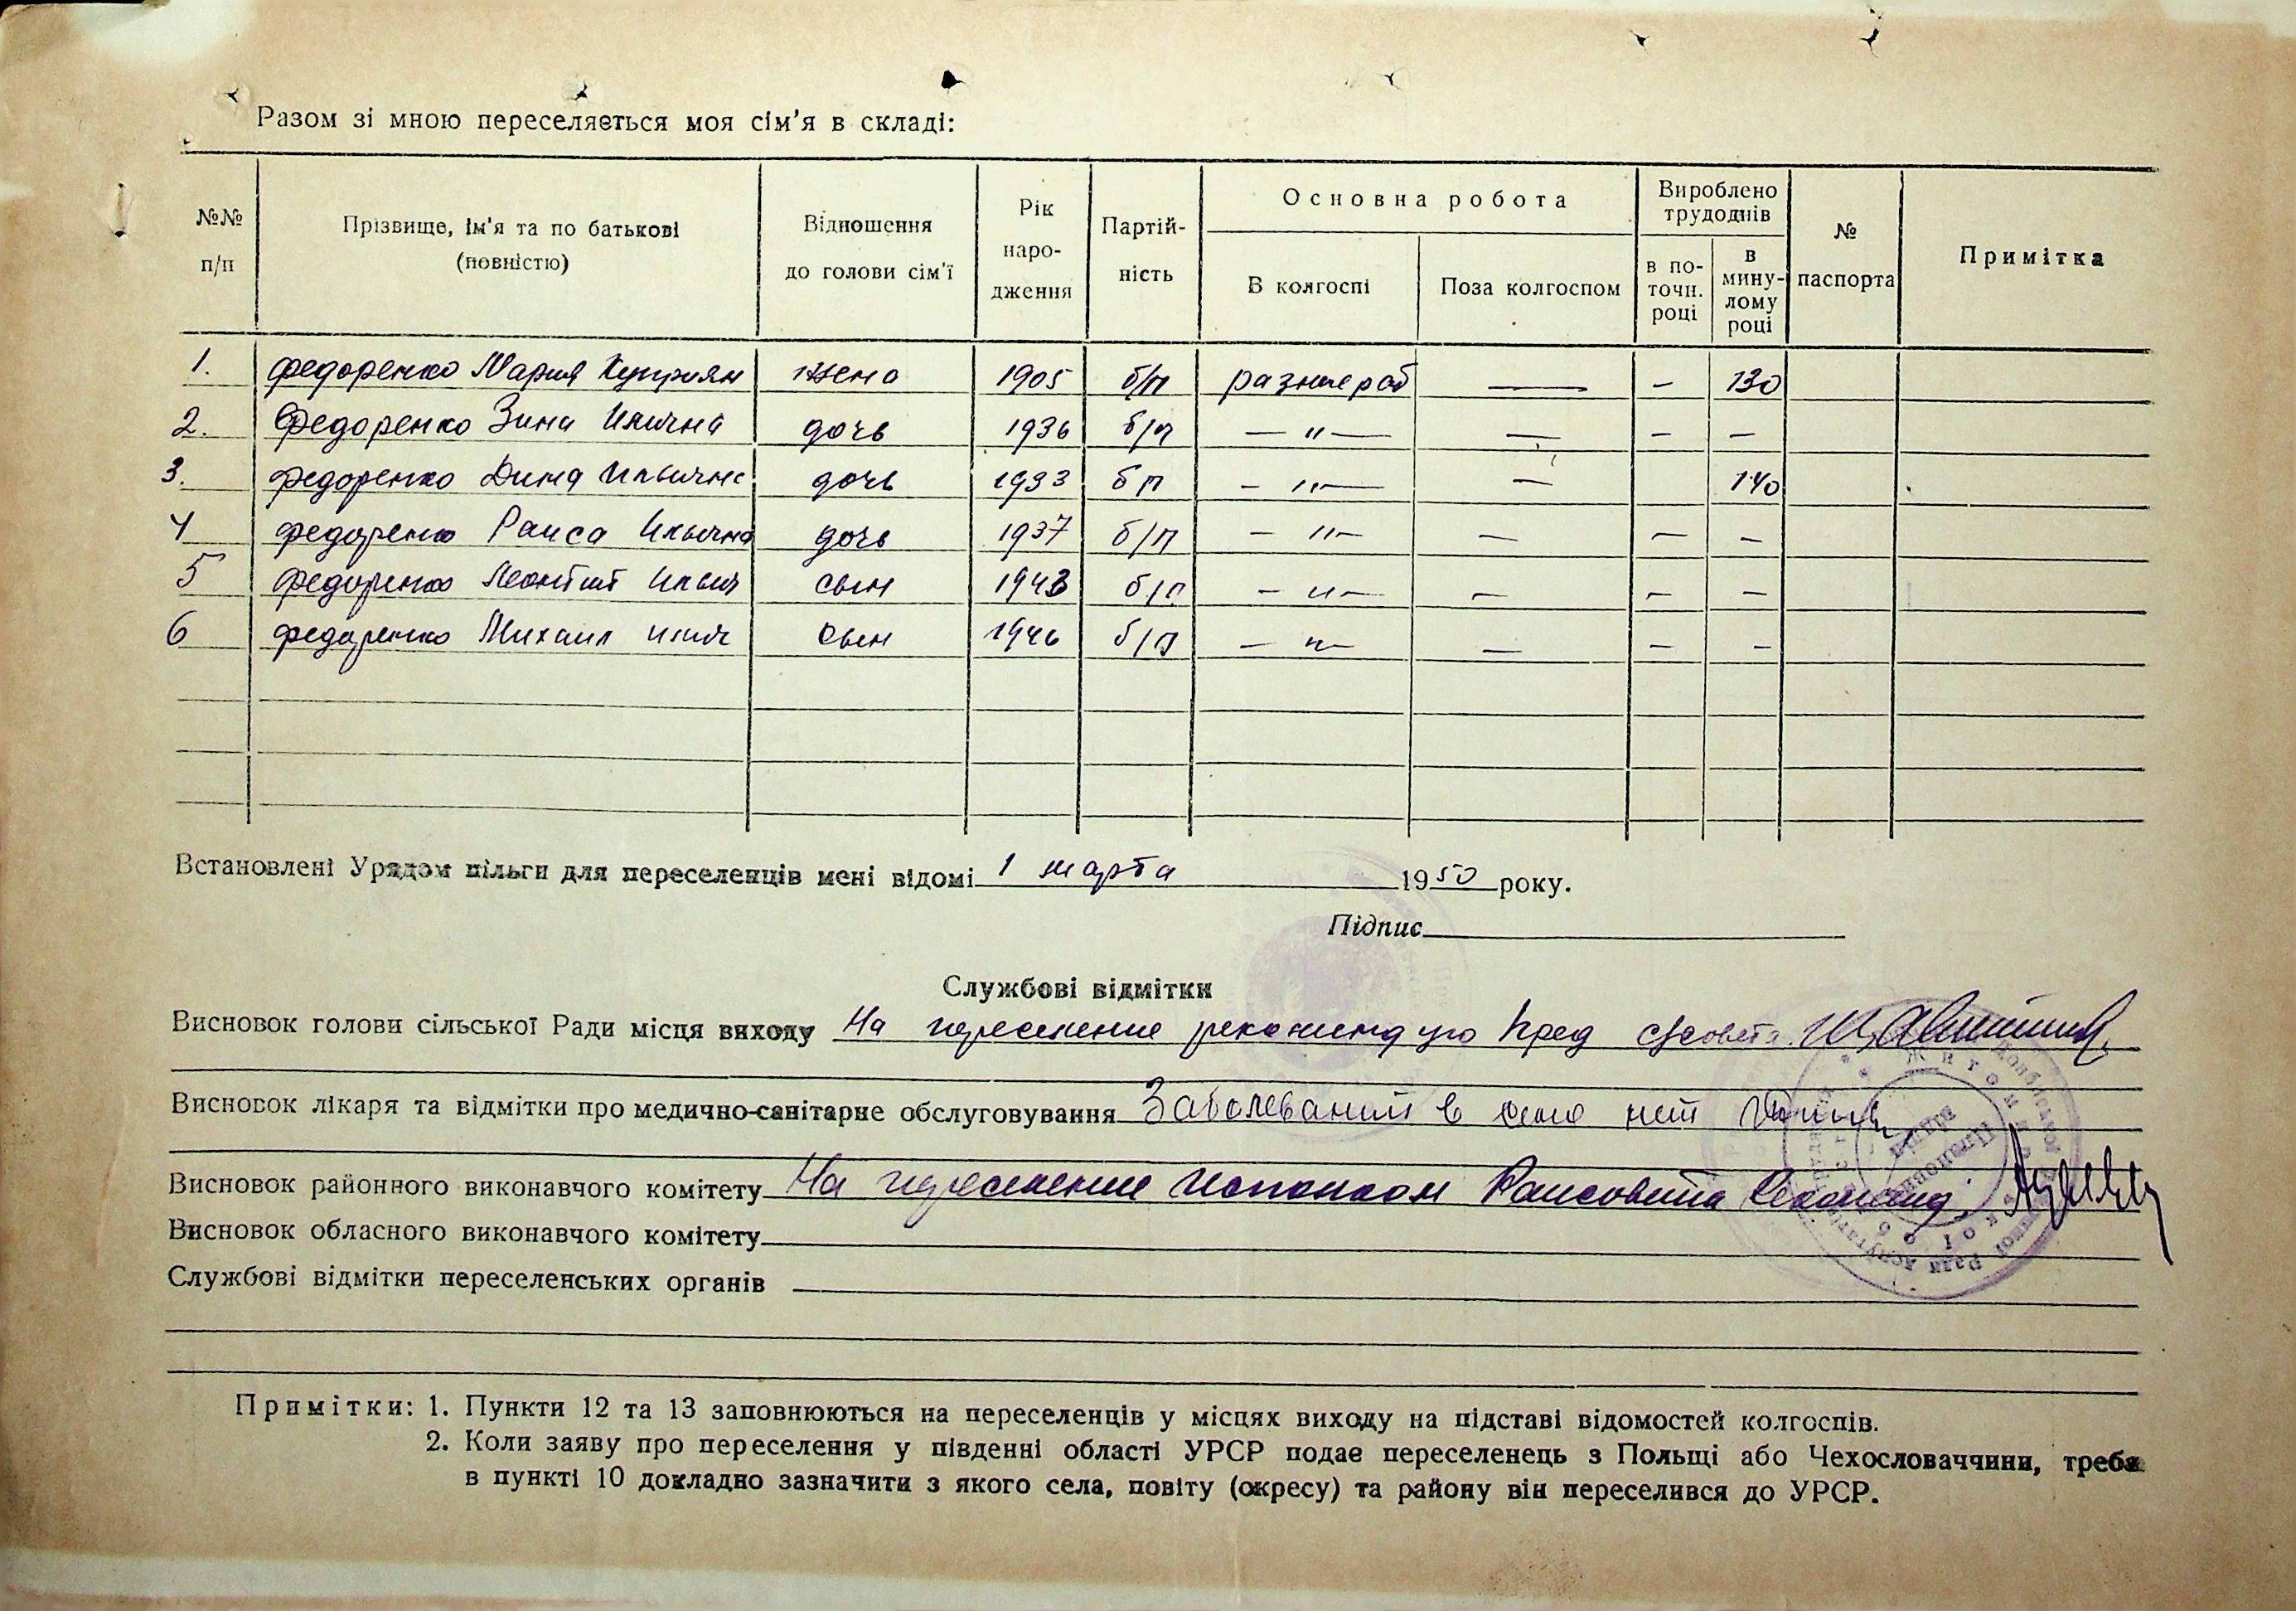 Разом зі мною переселяється моя сім'я в складі:
№№ п/п
Прізвище, ім'я та по батькові (повністю)
Відношення до голови сім'ї
Рік наро- дження
Партій- ність
Основна робота
В колгоспі
Поза колгоспом
Вироблено трудоднів
в по- точн. році
в мину- лому році
№ паспорта
Примітка
1. Федоренко Мария Куприян жена 1905 б/п разные раб — – 130
2. Федоренко Зина Илична дочь 1936 б/п — " — — – –
3. Федоренко Дина Ильичнс дочь 1933 б п – " — — 140
4 Федоренко Раиса Ильична дочь 1937 б/п – " – — — –
5 Федоренко Леонтий Ильич сын 1943 б/п – " – — – –
6 Федоренко Михаил Илич сын 1946 б/п — " — — – –
Встановлені Урядом пільги для переселенців мені відомі 1 марта 1950 року.
Підпис
Службові відмітки
Висновок голови сільської Ради місця виходу На переселение рекомендую Пред с/совета
Висновок лікаря та відмітки про медично-санітарне обслуговування Заболеваний в селе нет
Висновок районного виконавчого комітету На переселение Исполком Райсовета
Висновок обласного виконавчого комітету
Службові відмітки переселенських органів
Примітки: 1. Пункти 12 та 13 заповнюються на переселенців у місцях виходу на підставі відомостей колгоспів.
2. Коли заяву про переселення у південні області УРСР подає переселенець з Польщі або Чехословаччини, треба
в пункті 10 докладно зазначити з якого села, повіту (окресу) та району він переселився до УРСР.